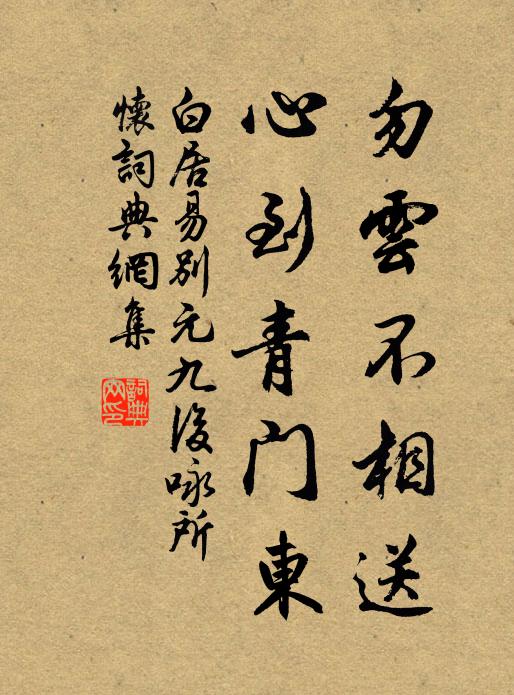 勿雲不相送
心到青门東
白居易别元九後咏所
懷詞典網集
詞典
网印